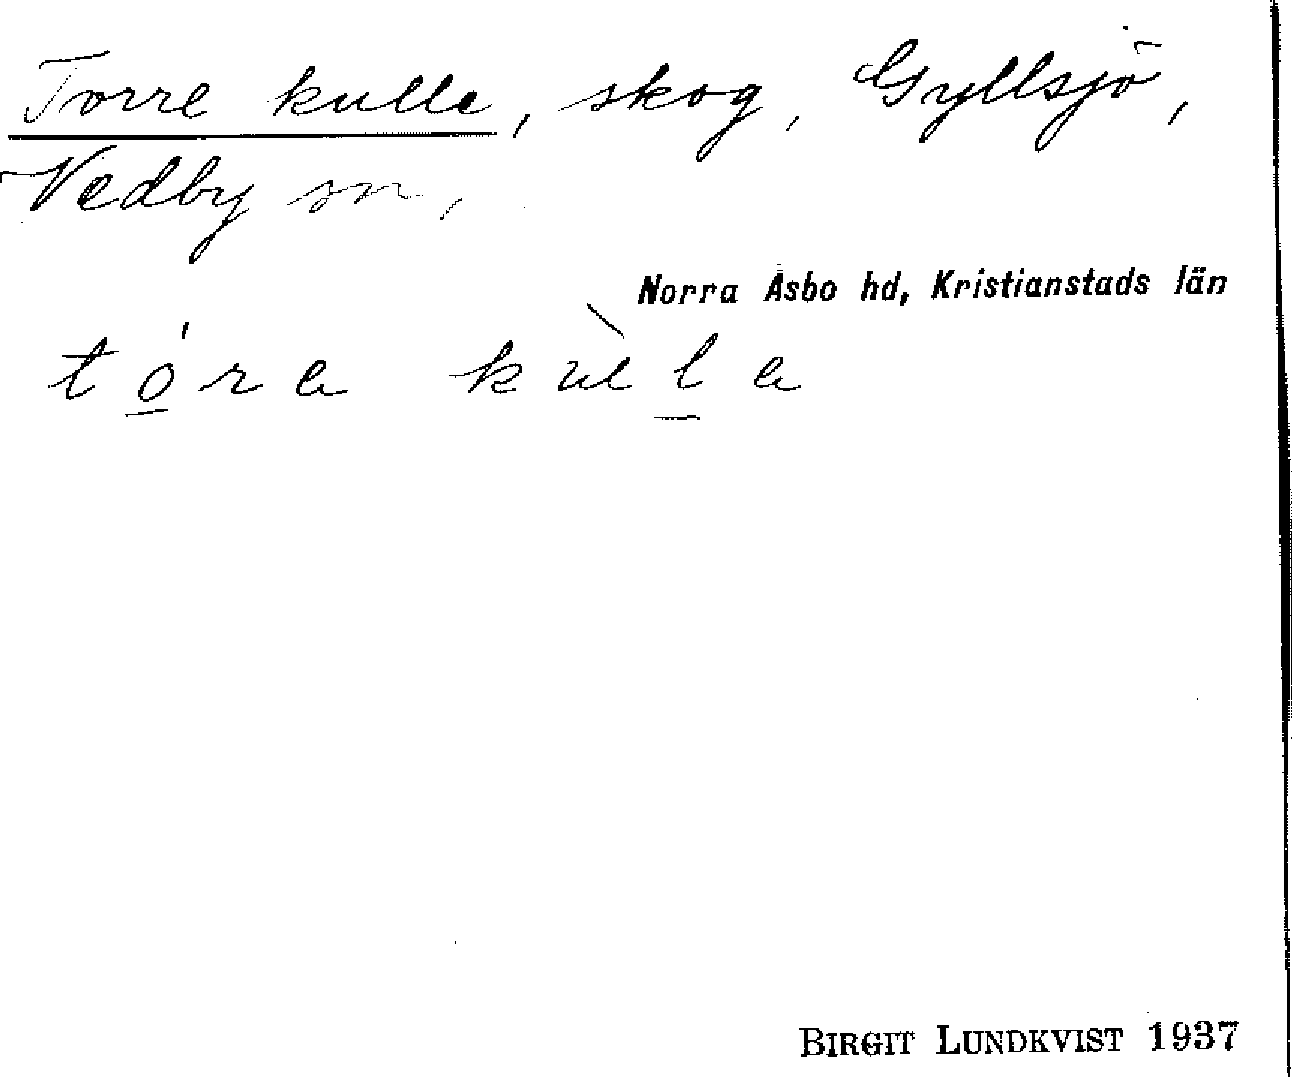 Torre kulle, skog, Gyllsjö,
Vedby sn,
Norra Åsbo hd, Kristianstads län
tó̲ra kùl̲a
BIRGIT LUNDKVIST 1937